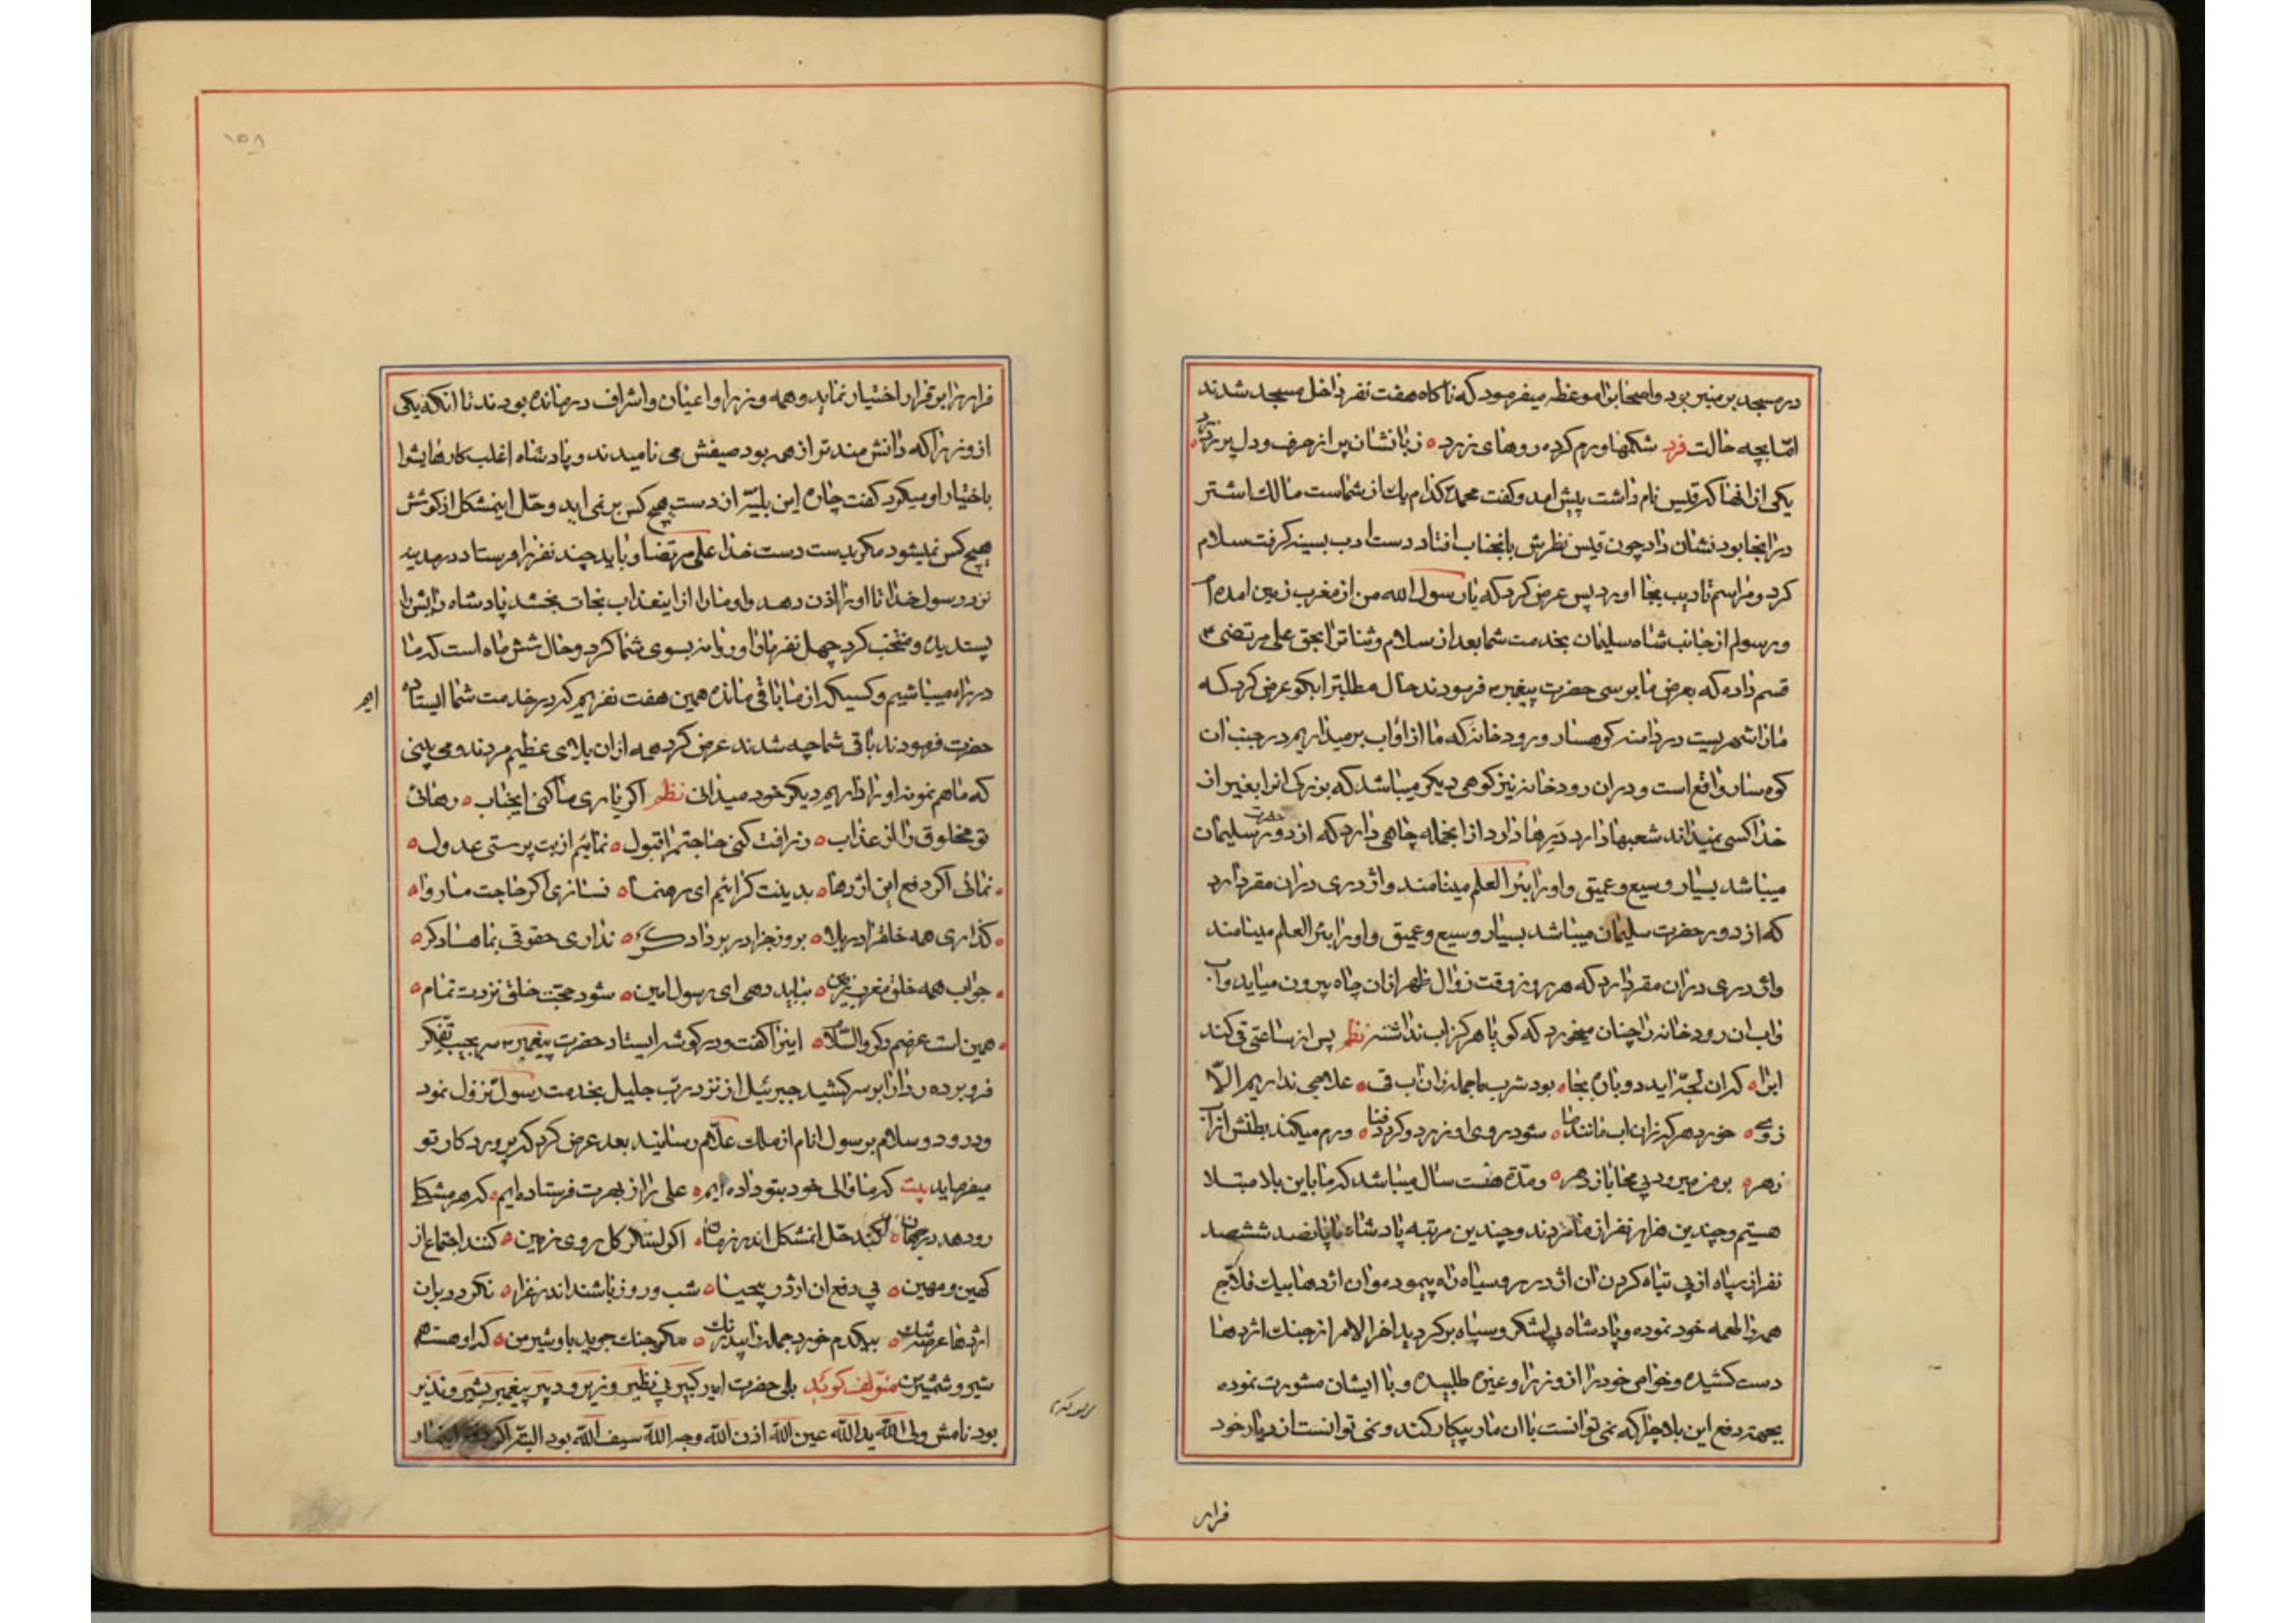 در مسجد بر منبر بود و اصحابرا موعظه میفرمود که ناکاه هفت نفر داخل مسجد شدند
امّا بچه حالت فرد شکمها ورم کرده روهای زرد زبانشان پر از حرف و دل پر ز درد
یکی از انها که قیس نام داشت پیش امد و کفت محمدّ کدام یک از شماست مالک اشتر
در انجا بود نشان داد چون قیس نظرش بانجناب افتاد دست ادب بسینه کرفت سلام
کرد و مراسم تادیب بجا اورد پس عرض کرد که یا رسول الله من از مغرب زمین امده ام
و رسولم از جانب شاه سلیمان بخدمت شما بعد از سلام و ثنا ترا بحق علی مرتضی
قسم داده که بعرض ما برسی حضرت پیغمبر فرمودند حال مطلبترا بکو عرض کرد که
مارا شهریست در دامنه کوهسار و رودخانه که ما از او اب برمیداریم در جنب ان
کوهسار واقع است و در ان رودخانه نیز کوهی دیکر میباشد که بزرکی انرا بغیر از
خدا کسی نمیداند شعبها دارد دَیرها دارد از انجمله چاهی دارد که از دور حضرت سلیمان
میباشد بسیار وسیع و عمیق و اورا بئر العلم مینامند و اژدری در ان مقر دارد
که از دور حضرت سلیمان میباشد بسیار وسیع و عمیق و اورا بئر العلم مینامند
واژدری در ان مقر دارد که هر روز وقت زوال ظهر از ان چاه بیرون میاید و اب
و اب ان رودخانه را چنان میخورد که کویا هرکز اب نداشته نظم پس از ساعتی قی کند
ابرا که ان لجّه اید دوباره بجا بود شرب ما جمله زان اب قی علاجی نداریم الاّ
ز وی خورد هر که زان اب مانند ما شود روی او زرد و کردد فنا ورم میکند بطنش از آن
زهر برمز میرود بی محابا ز دهر و مدّة هفت سال میباشد که ما باین بلا مبتلا
هستیم و چندین هزار نفر از ما مردند و چندین مرتبه پادشاه با پانصد ششصد
نفر از سپاه از پی تباه کردن ان اژدر رو سیاه راه پیموده و ان اژدها بیک فلاّج
همه را طعمه خود نموده و پادشاه بی لشکر و سپاه برکردید اخر الامر از جنک اژدها
دست کشیده و خواص خود را از وزرا و غیره طلبیده و با ایشان مشورت نموده
بجهة دفع این بلا چرا که نمی توانست با ان مار پیکار کند و نمی توانست از دیار خود
فرار
۱۵۸
فرار را بر قرار اختیار نماید و همه وزرا و اعیان و اشراف درمانده بودند تا انکه یکی
از وزرا که دانش مند تر از همه بود صیفش می نامیدند و پادشاه اغلب کارهایشرا
باختیار او میکرد کفت چاره این بلیّه از دست هیچ کس بر نمی اید و حّل اینمشکل از کوشش
هیچ کس نمیشود مکر بدست دست خدا علی مرتضا و باید چند نفر را فرستاد در مدینه
نزد رسول خدا تا اورا اذن دهد و او مارا از اینعذاب نجات بخشد پادشاه رایش را
پسندیده و منتخب کرد چهل نفر مارا و روانه بسوی شما کرد و حال شش ماه است که ما
در راه میباشیم و کسیکه از ما باقی مانده همین هفت نفریم که در خدمت شما ایستاده
ایم
حضرت فرمودند باقی شما چه شدند عرض کرد همه از ان بلای عظیم مردند و می بینی
که ما هم نمونه اورا داریم دیکر خود میدانی نظم اکر یاری ما کنی ایجناب رهانی
تو مخلوق را از عذاب ز رافت کنی حاجتم را قبول نمائیم از بت پرستی عدول
نمائی اکر دفع این اژدها بدینت کرائیم ای رهنما نسازی اکر حاجت ما روا
کذاری همه خلقرا در بلا بروز جزا در بر دادکر نداری حقوقی بما هنا دکر
جواب همه خلق مغرب زمین بباید دهی ای رسول امین شود حجّت خلق نزدت تمام
همین است عرضم دکر والسّلام اینرا کفت و در کوشه ایستاد حضرت پیغمبر سر بجیب تفّکر
فرو برده ردا را بر سر کشید جبرئیل از نزد ربّ جلیل بخدمت رسول نزول نمود
و درود و سلام بر رسول انام از ملک علاّم رسانید بعد عرض کرد که پرورد کار تو
میفرماید بیت که ما والی خود بتو داده ایم علی را ز بهرت فرستاده ایم که هر مشکل
رو دهد در جهان کند حّل انمشکل اندر زمان اکر لشکر کل روی زمین کنند اجتماع از
کهین و مهین پی دفع ان اژدر بیحیا شب و روز باشند اندر غزا نکردد بران
اژدها عرصه تنک بیکدم خورد جمله را بیدرنک مکر جنک جوید باو شیر من که او هست هم
شیر و شمشیر من مؤلف کوید بلی حضرت امیر کبیر بی نظیر وزیر و دبیر پیغمبر بشیر و نذیر
بود نامش ولی الله ید الله عین الله اذن الله وجه الله سیف الله بود البته اکر